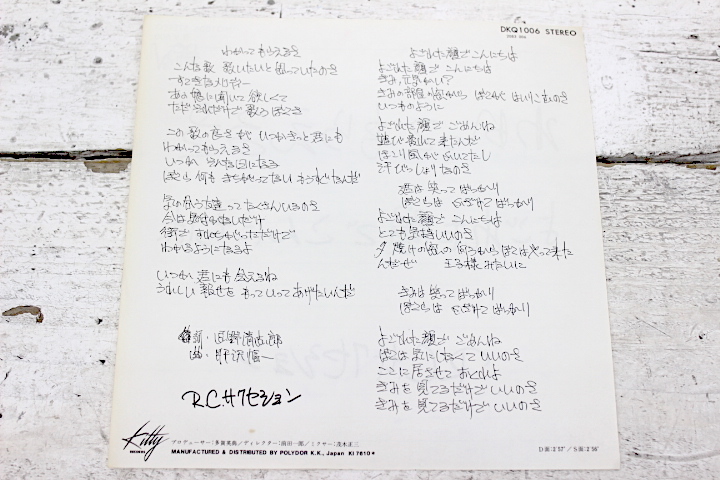 DKQ1006 STEREO
わかってもらえるさ
こんな歌 歌いたいと思っていたのさ
すてきなメロディー
あの娘に聞いて欲しくて
ただそれだけで歌うぼくさ
この歌の良さが いつかきっと君にも
わかってもらえるさ
いつか そんな日になる
ぼくら何も まちがってない もうすぐなんだ
気の合う友達ってたくさんいるのさ
今は気付かないだけ
街で すれちがっただけで
わかるようになるよ
いつか 君にも会えるね
うれしい 報せを もっていってあげたいんだ
詞・忌野清志郎
曲・肝沢幅一
R.C.サクセション
よごれた顔でこんにちは
よごれた顔で こんにちは
きみ、元気かい?
きみの部屋の窓から ぼくが はいりこむのさ
いつものように
よごれた顔で ごめんね
遊び疲れて来たんだ
ほこり風が ふいてたし
汗びっしょりなのさ
君は笑ってばっかり
ぼくらは ふざけてばっかり
よごれた顔で こんにちは
とても気持いいのさ
夕焼けの街の向うから ぼくはやって来た
んだぜ 王子様みたいに
きみは笑ってばっかり
ぼくらは ふざけてばっかり
よごれた顔で ごめんね
ぼくは気にしなくていいのさ
ここに居させておくれよ
きみを見てるだけでいいのさ
きみを見てるだけでいいのさ
Kitty
RECORDS
プロデューサー:多賀英典/ディレクター:前田一郎/ミクサー:茂木正三
MANUFACTURED & DISTRIBUTED BY POLYDOR K.K., Japan KI 7610★
D面:2'57" / S面:2'56"